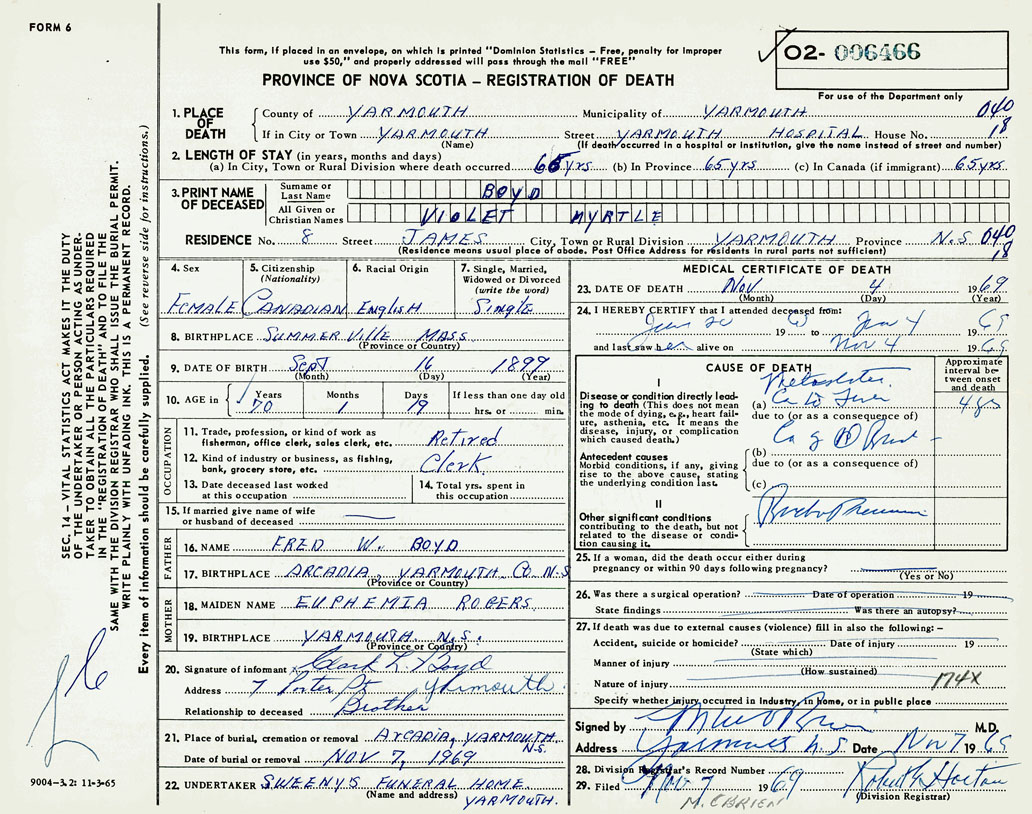 FORM 6
This form, if placed in an envelope, on which is printed "Dominion Statistics – Free, penalty for improper
use $50," and properly addressed will pass through the mail "FREE"
PROVINCE OF NOVA SCOTIA – REGISTRATION OF DEATH
O2- 006466
For use of the Department only
1. PLACE OF DEATH
County of YARMOUTH Municipality of YARMOUTH 040
If in City or Town YARMOUTH Street YARMOUTH HOSPITAL House No. 18
(Name) (If death occurred in a hospital or institution, give the name instead of street and number)
2. LENGTH OF STAY (in years, months and days)
(a) In City, Town or Rural Division where death occurred 65 yrs (b) In Province 65 yrs (c) In Canada (if immigrant) 65 yrs
3. PRINT NAME OF DECEASED
Surname or Last Name BOYD
All Given or Christian Names VIOLET MYRTLE
RESIDENCE No. 8 Street JAMES City, Town or Rural Division YARMOUTH Province N.S 040
(Residence means usual place of abode. Post Office Address for residents in rural parts not sufficient) 18
4. Sex
FEMALE
5. Citizenship (Nationality)
CANADIAN
6. Racial Origin
English
7. Single, Married, Widowed or Divorced (write the word)
Single
8. BIRTHPLACE SUMMERVILLE MASS
(Province or Country)
9. DATE OF BIRTH Sept 16 1899
(Month) (Day) (Year)
10. AGE in Years Months Days If less than one day old
70 1 19 hrs. or min.
OCCUPATION
11. Trade, profession, or kind of work as fisherman, office clerk, sales clerk, etc. Retired
12. Kind of industry or business, as fishing, bank, grocery store, etc. Clerk
13. Date deceased last worked at this occupation
14. Total yrs. spent in this occupation
15. If married give name of wife or husband of deceased
FATHER
16. NAME FRED W. BOYD
17. BIRTHPLACE ARCADIA, YARMOUTH Co N.S
(Province or Country)
MOTHER
18. MAIDEN NAME EUPHEMIA ROGERS
19. BIRTHPLACE YARMOUTH N.S.
(Province or Country)
20. Signature of informant Clark L. Boyd
Address 7 Porter St Yarmouth
Relationship to deceased Brother
21. Place of burial, cremation or removal ARCADIA, YARMOUTH N.S.
Date of burial or removal NOV 7, 1969
22. UNDERTAKER SWEENY'S FUNERAL HOME
(Name and address) YARMOUTH.
MEDICAL CERTIFICATE OF DEATH
23. DATE OF DEATH Nov 4 1969
(Month) (Day) (Year)
24. I HEREBY CERTIFY that I attended deceased from:
19 to Nov 4 1969
and last saw her alive on Nov 4 1969
CAUSE OF DEATH
Approximate interval between onset and death
I
Disease or condition directly leading to death (This does not mean the mode of dying, e.g., heart failure, asthenia, etc. It means the disease, injury, or complication which caused death.)
(a) Ca
due to (or as a consequence of)
Ca
Antecedent causes
Morbid conditions, if any, giving rise to the above cause, stating the underlying condition last.
(b)
due to (or as a consequence of)
(c)
II
Other significant conditions contributing to the death, but not related to the disease or condition causing it.
25. If a woman, did the death occur either during pregnancy or within 90 days following pregnancy?
(Yes or No)
26. Was there a surgical operation? Date of operation 19
State findings Was there an autopsy?
27. If death was due to external causes (violence) fill in also the following: –
Accident, suicide or homicide? Date of injury 19
(State which)
Manner of injury
(How sustained)
Nature of injury 174X
Specify whether injury occurred in Industry, in home, or in public place
Signed by M.D.
Address Yarmouth N.S Date Nov 7 1969
28. Division Registrar's Record Number
29. Filed Nov 7 1969 Robert G Horton
(Division Registrar)
M. O'BRIEN
SEC. 14 – VITAL STATISTICS ACT MAKES IT THE DUTY
OF THE UNDERTAKER OR PERSON ACTING AS UNDER-
TAKER TO OBTAIN ALL THE PARTICULARS REQUIRED
IN THE "REGISTRATION OF DEATH" AND TO FILE THE
SAME WITH THE DIVISION REGISTRAR WHO SHALL ISSUE THE BURIAL PERMIT.
WRITE PLAINLY WITH UNFADING INK. THIS IS A PERMANENT RECORD.
Every item of information should be carefully supplied. (See reverse side for instructions.)
9004-3.2: 11-3-65